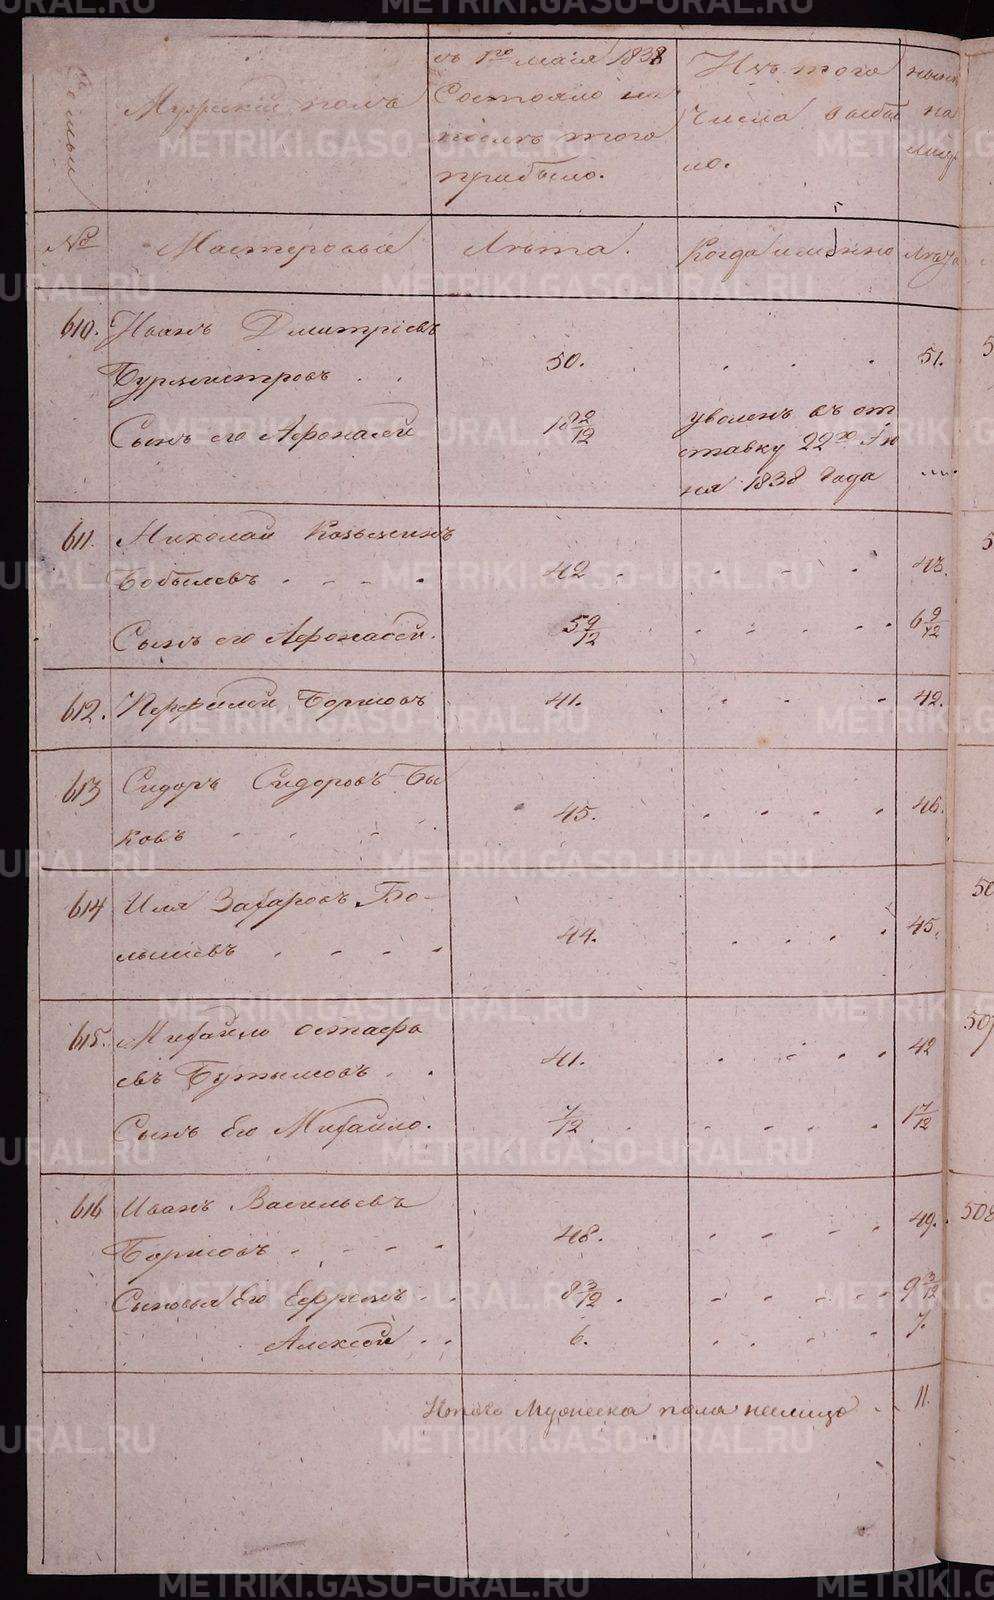 Семьи
Мужескій полъ
съ 1го маія 1838
Состояло и
послѣ того
прибыло.
Изъ того
числа выбы
ло.
на
лицо
№
Мастеровые
Лѣта.
Когда именно
Лѣта
610. Иванъ Дмитріевъ
Бурмистровъ . . 50. . . . 51.
Сынъ его Афонасей
уволенъ въ от
ставку 22го Ію
ня 1838 года
611. Николай Козьминъ
Бобылевъ . - - - . 42 . - - - . 43.
Сынъ его Афонасей. 5 9/12 . . . . 6 9/12
612. Перфилей Борисовъ 41. - - - 42.
613 Сидоръ Сидоровъ Бы
ковъ - - - - 45. - - - - 46.
614 Илья Захаровъ Бо-
лышевъ . . - - 44. . . . . 45.
615. Михайло Остафь
евъ Бутымовъ . . 41. . - . . 42
Сынъ Его Михайло. 7/12 . . . . 1 7/12
616 Иванъ Васильевъ
Борисовъ - - - - 48. - - - - 49.
Сыновья Его Ефремъ - - 8 3/12 . - - - - 9 3/12
Алексей - - 6. . . . . 7.
Мужеска пола налицо . . 11.
507
508
METRIKI.GASO-URAL.RU